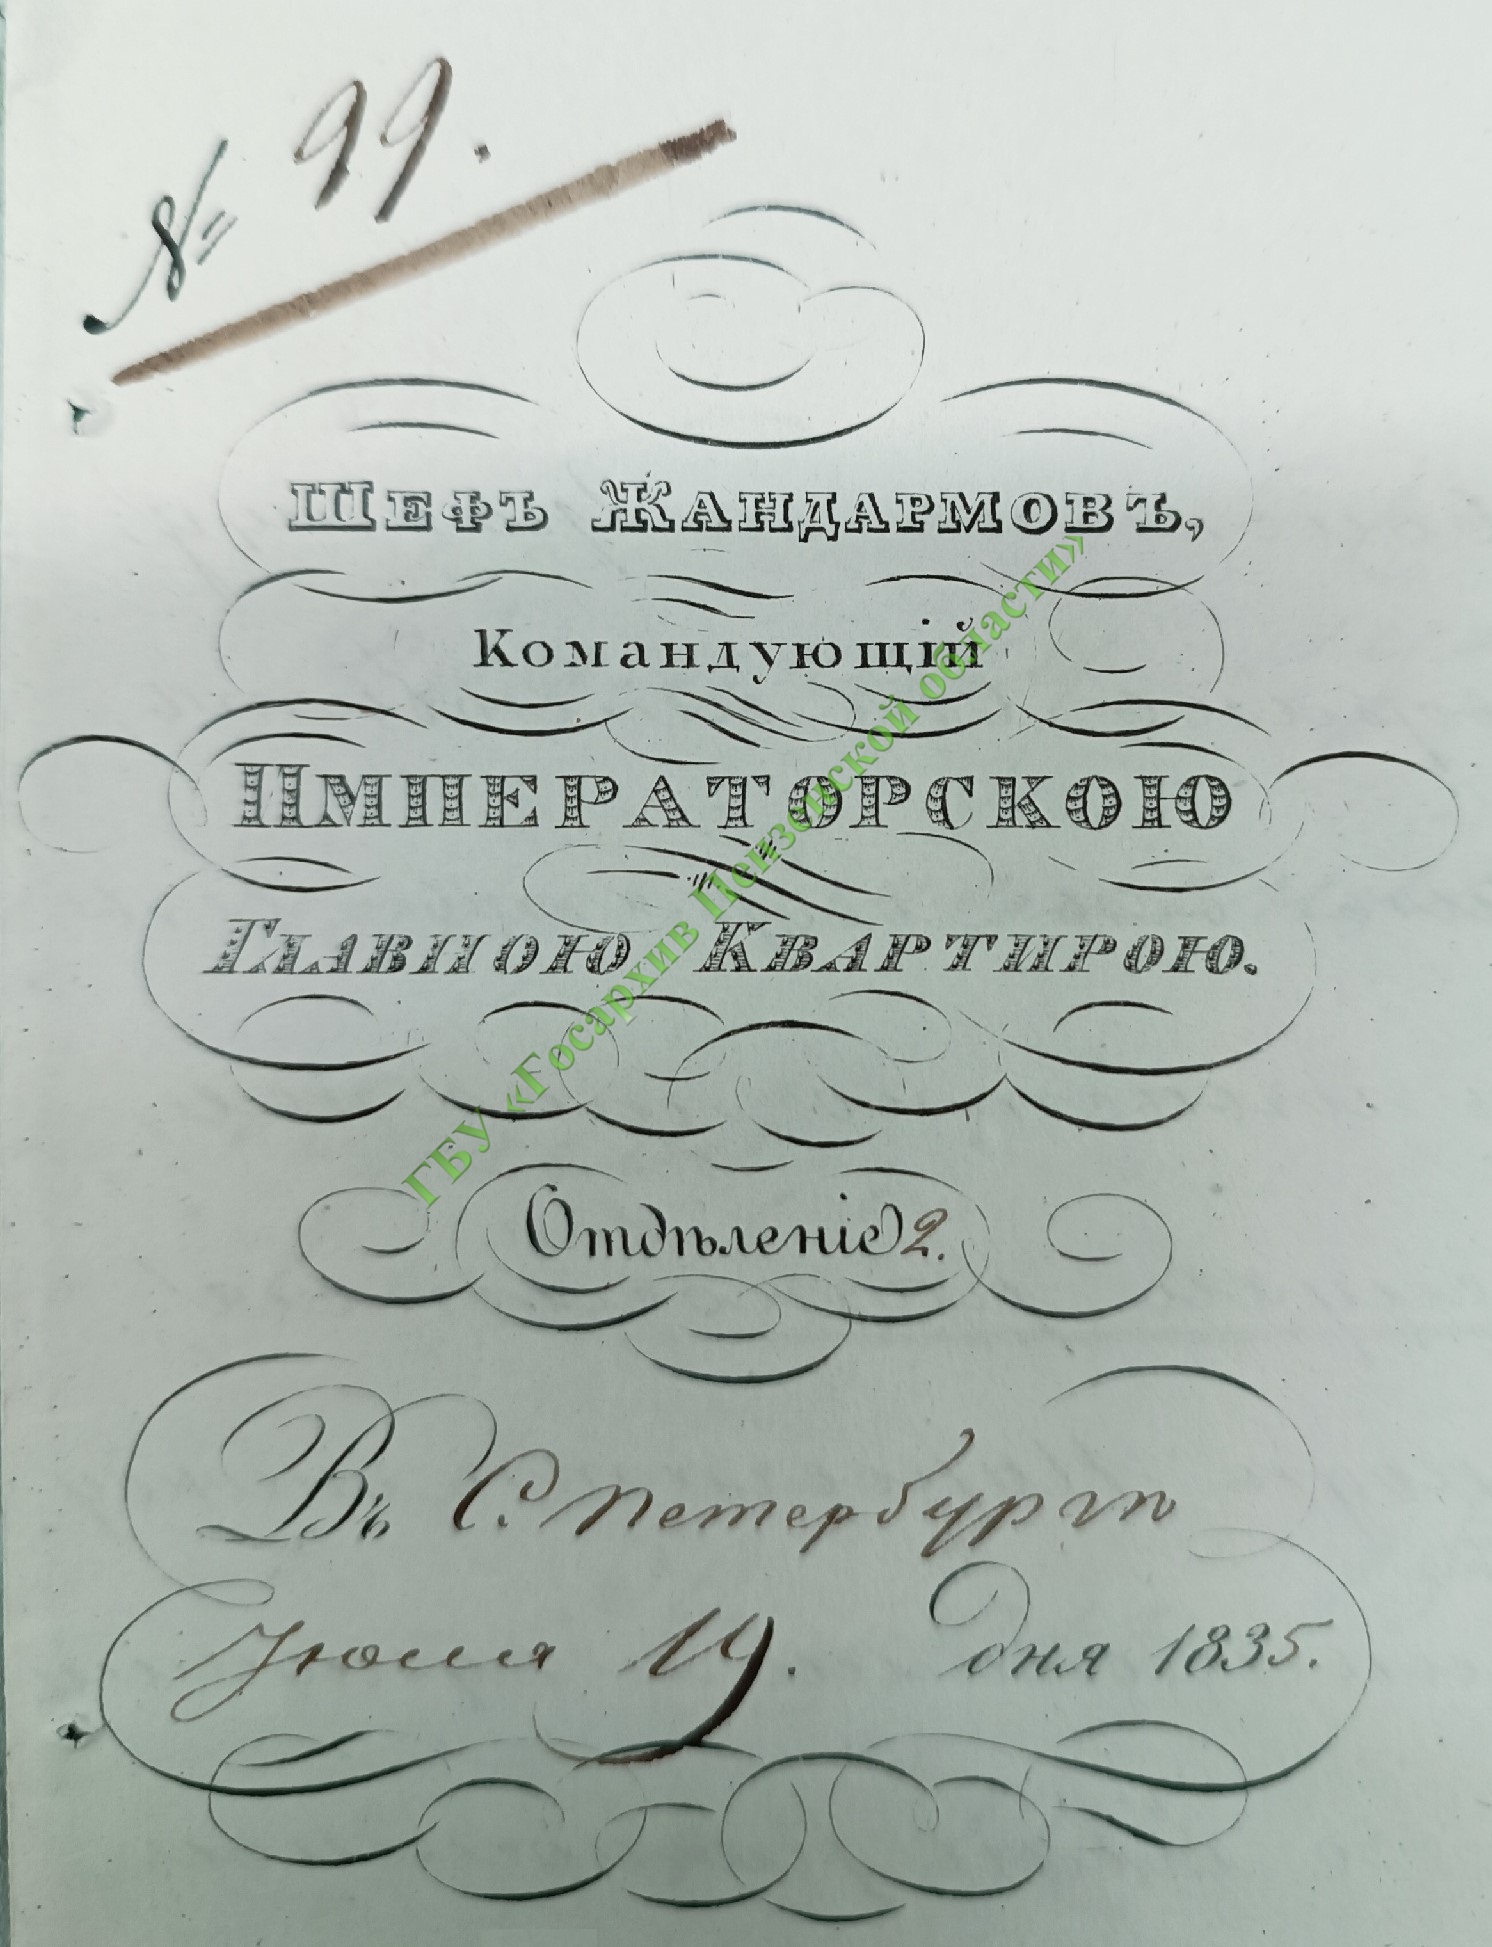 № 99.
Шефъ Жандармовъ,
Командующій
Императорскою
Главною Квартирою.
Отдѣленіе 2.
Въ С. Петербургѣ
Июля 19. дня 1835.
ГБУ «Госархив Пензенской области»